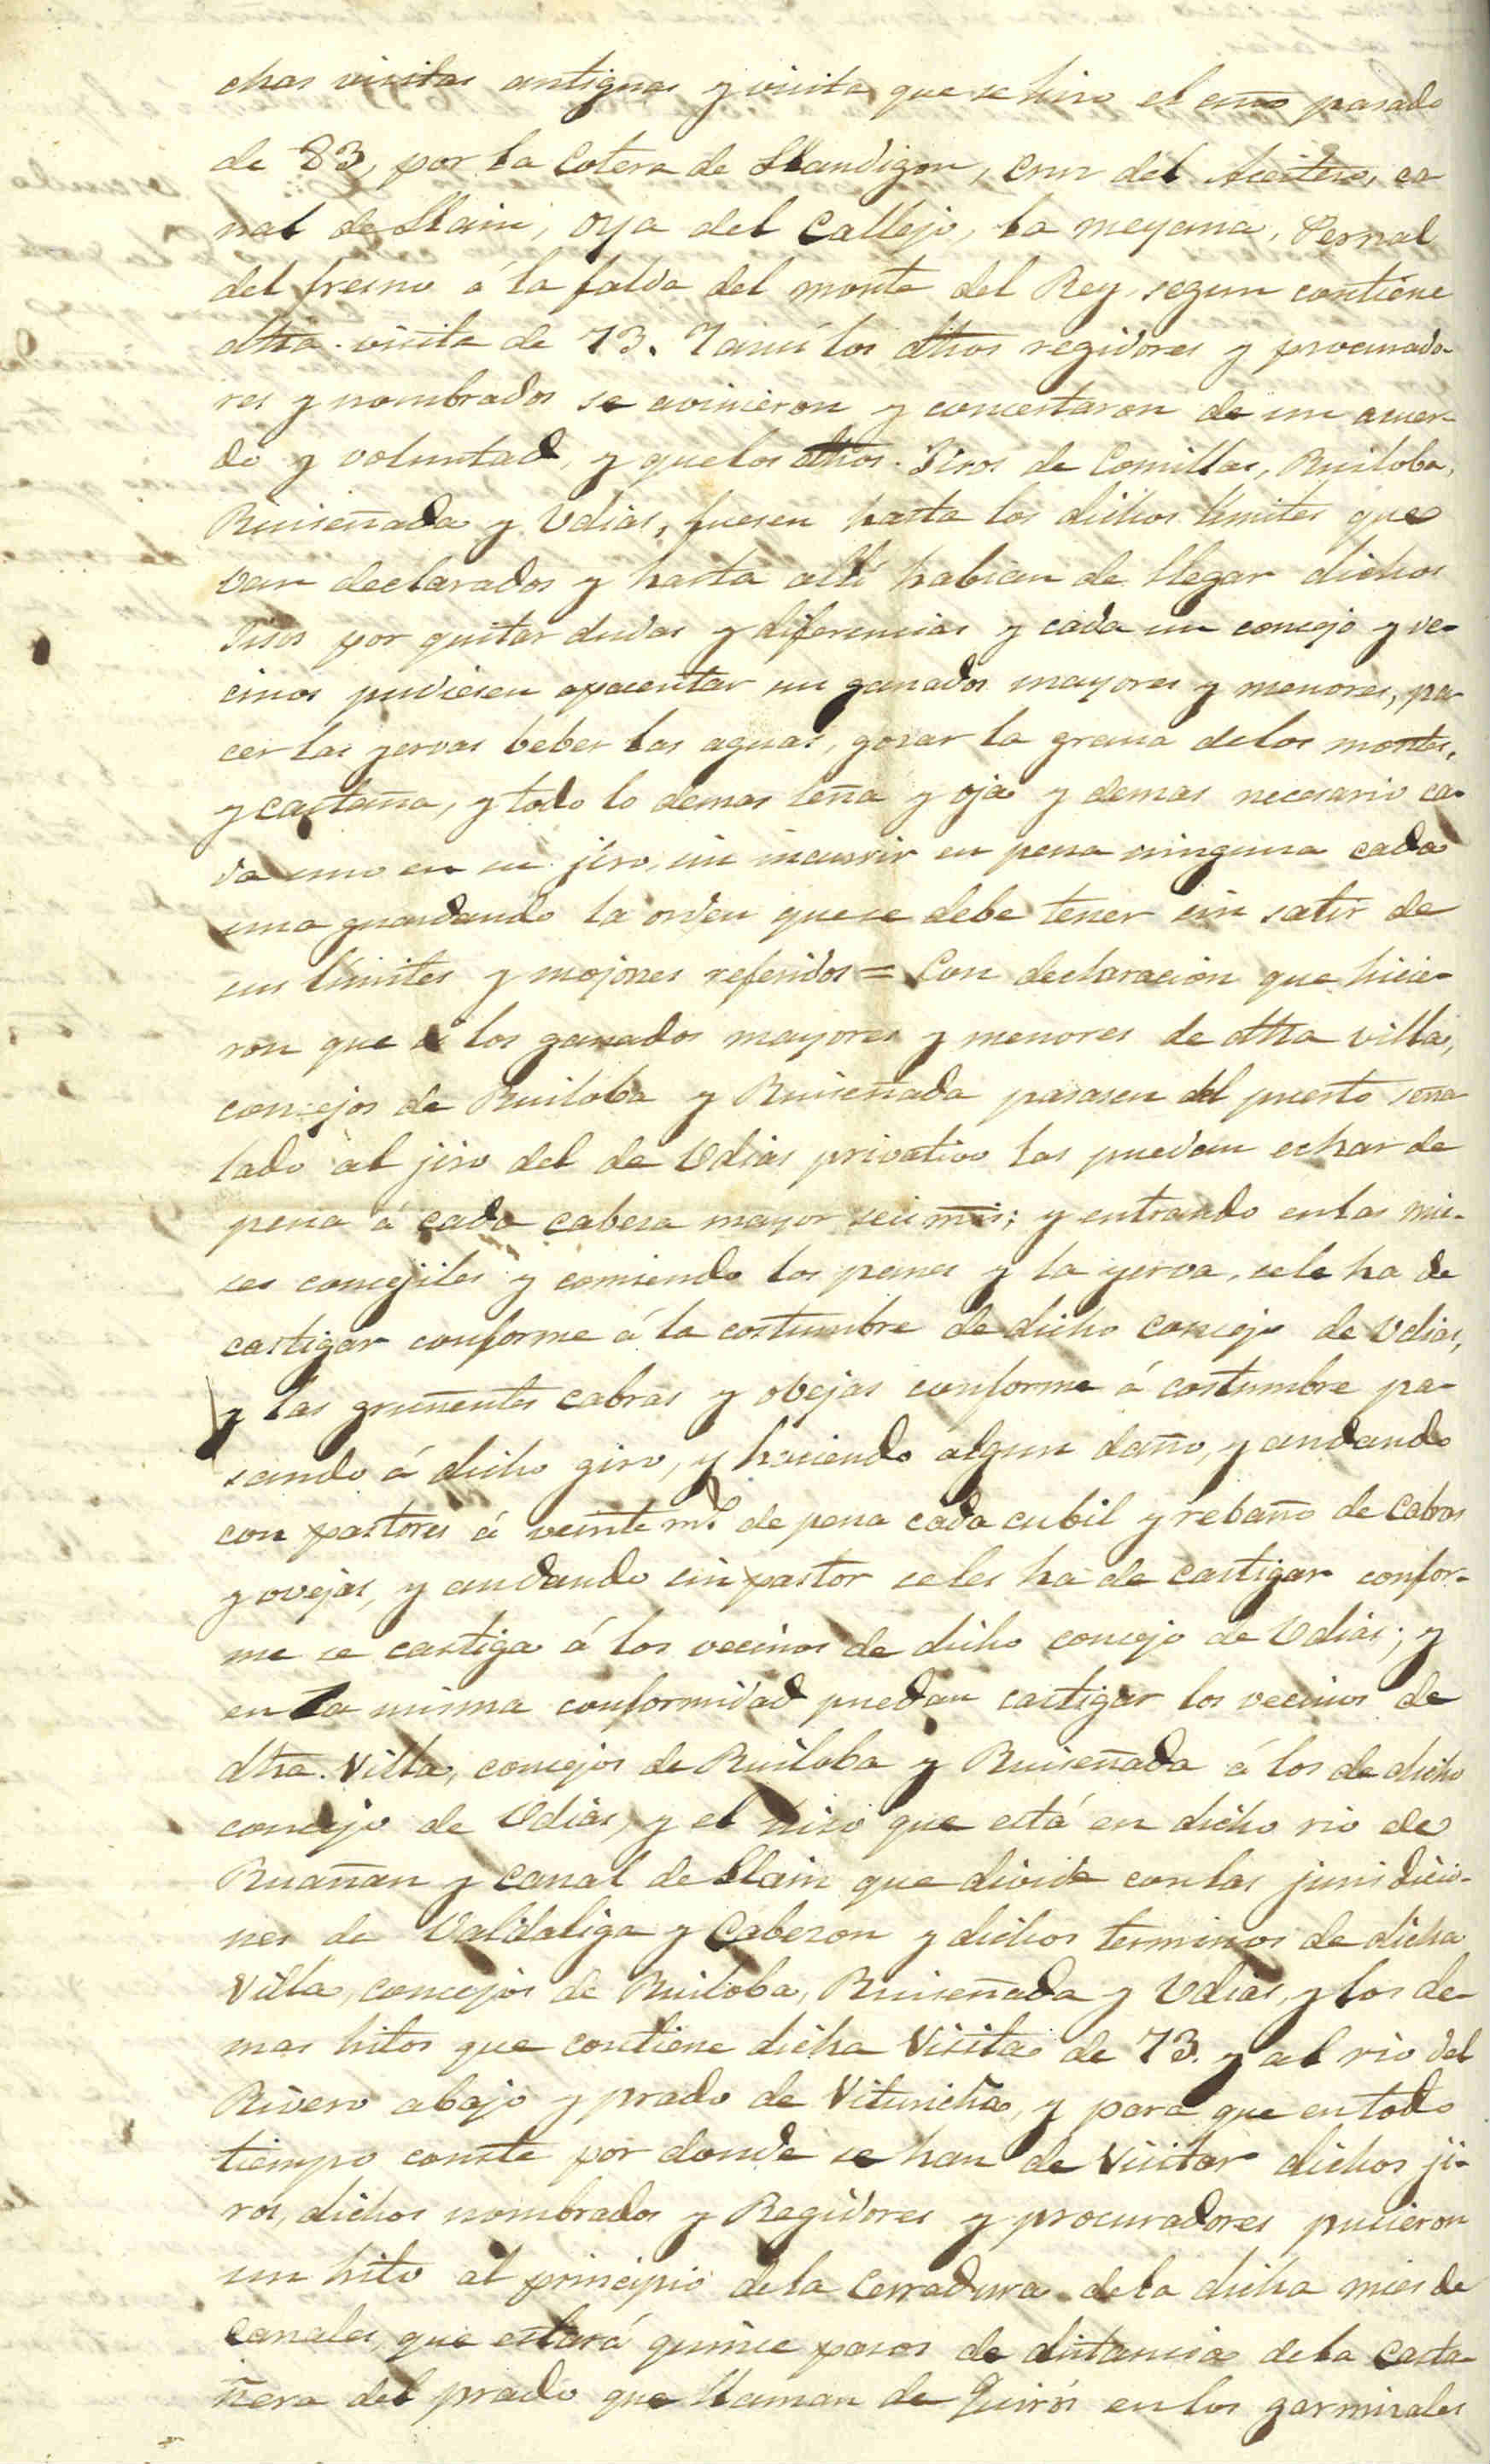 chas visitas antiguas y visita que se hizo el año pasado
de 83, por la Cotera de Llandigon, cruz del Aceitero, ca-
nal de Llain, oya del Callejo, la meyana, Pernal
del fresno á la falda del monte del Rey segun contiene
dtha. visita de 73. Y ansi los dthos regidores y procurado-
res y nombrados se avinieron y concertaron de un acuer-
do y voluntad, y que los dthos. Jiros de Comillas, Ruiloba,
Ruiseñada y Udias, fuesen hasta los dichos limites que
van declarados y hasta allí habian de llegar dichos
Jiros por quitar dudas y diferencias y cada un concejo y ve-
cinos pudiesen apacentar sus ganados mayores y menores, pa-
cer las yervas beber las aguas, gozar la grana delos montes,
y castaña, y todo lo demas leña y oja y demas necesario ca-
da uno en su jiro, sin incurrir en pena ninguna cada
uno guardando la orden que se debe tener sin salir de
sus límites y mojones referidos = Con declaracion que hicie-
ron que á los ganados mayores y menores de dtha villa,
concejos de Ruiloba y Ruiseñada pasasen del puesto seña-
lado al jiro del de Udias privativo los puedan echar de
pena á cada cabeza mayor seis mrs; y entrando en las mie-
ses concejiles y comiendo los panes y la yerva, sele ha de
castigar conforme á la costumbre de dicho concejo de Udias,
y las gruñentes cabras y obejas conforme á costumbre pa-
sando á dicho giro, y haciendo algun daño, y andando
con pastores á veinte ms. de pena cada cubil y rebaño de Cabras
y ovejas, y andando sin pastor seles ha de castigar confor-
me se castiga á los vecinos de dicho concejo de Udias; y
en la misma conformidad puedan castigar los vecinos de
dtha. Villa, concejos de Ruiloba y Ruiseñada á los de dicho
concejo de Udias, y el hiso que está en dicho rio de
Ruañan y canal de Llain que divide con las jurisdicio-
nes de Valdaliga y Cabezon y dichos terminos de dicha
Villa, concejos de Ruiloba, Ruiseñada y Udias, y los de-
mas hitos que contiene dicha Visita de 73. y al rio del
Rivero abajo y prado de Vituricha, y para que en todo
tiempo conste por donde se han de Visitar dichos ji-
ros, dichos nombrados y Regidores y procuradores pusieron
un hito al principio dela Cerradura dela dicha mies de
Canales, que estará quince pasos de distancia dela Casta-
ñera del prado que llaman de Quirós en los garmizales